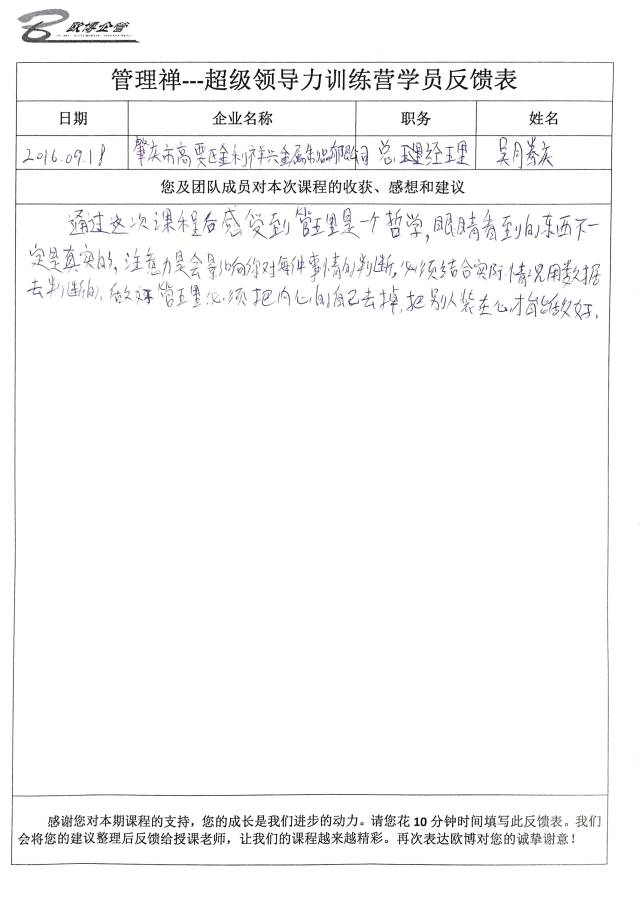 欧博企管
管理禅---超级领导力训练营学员反馈表
日期 企业名称 职务 姓名
2016.09.18 肇庆市高要区金利祥兴金属制品有限公司 总经理 吴月
您及团队成员对本次课程的收获、感想和建议
通过这次课程后感受到管理是一个哲学,眼睛看到的东西不一
定是真实的,注意力是会影响你对每件事情的判断,必须结合实际情况用数据
去判断的,做好管理必须把内心的自己去掉,把别人装在心才能做好.
感谢您对本期课程的支持,您的成长是我们进步的动力。请您花 10 分钟时间填写此反馈表。我们
会将您的建议整理后反馈给授课老师,让我们的课程越来越精彩。再次表达欧博对您的诚挚谢意!